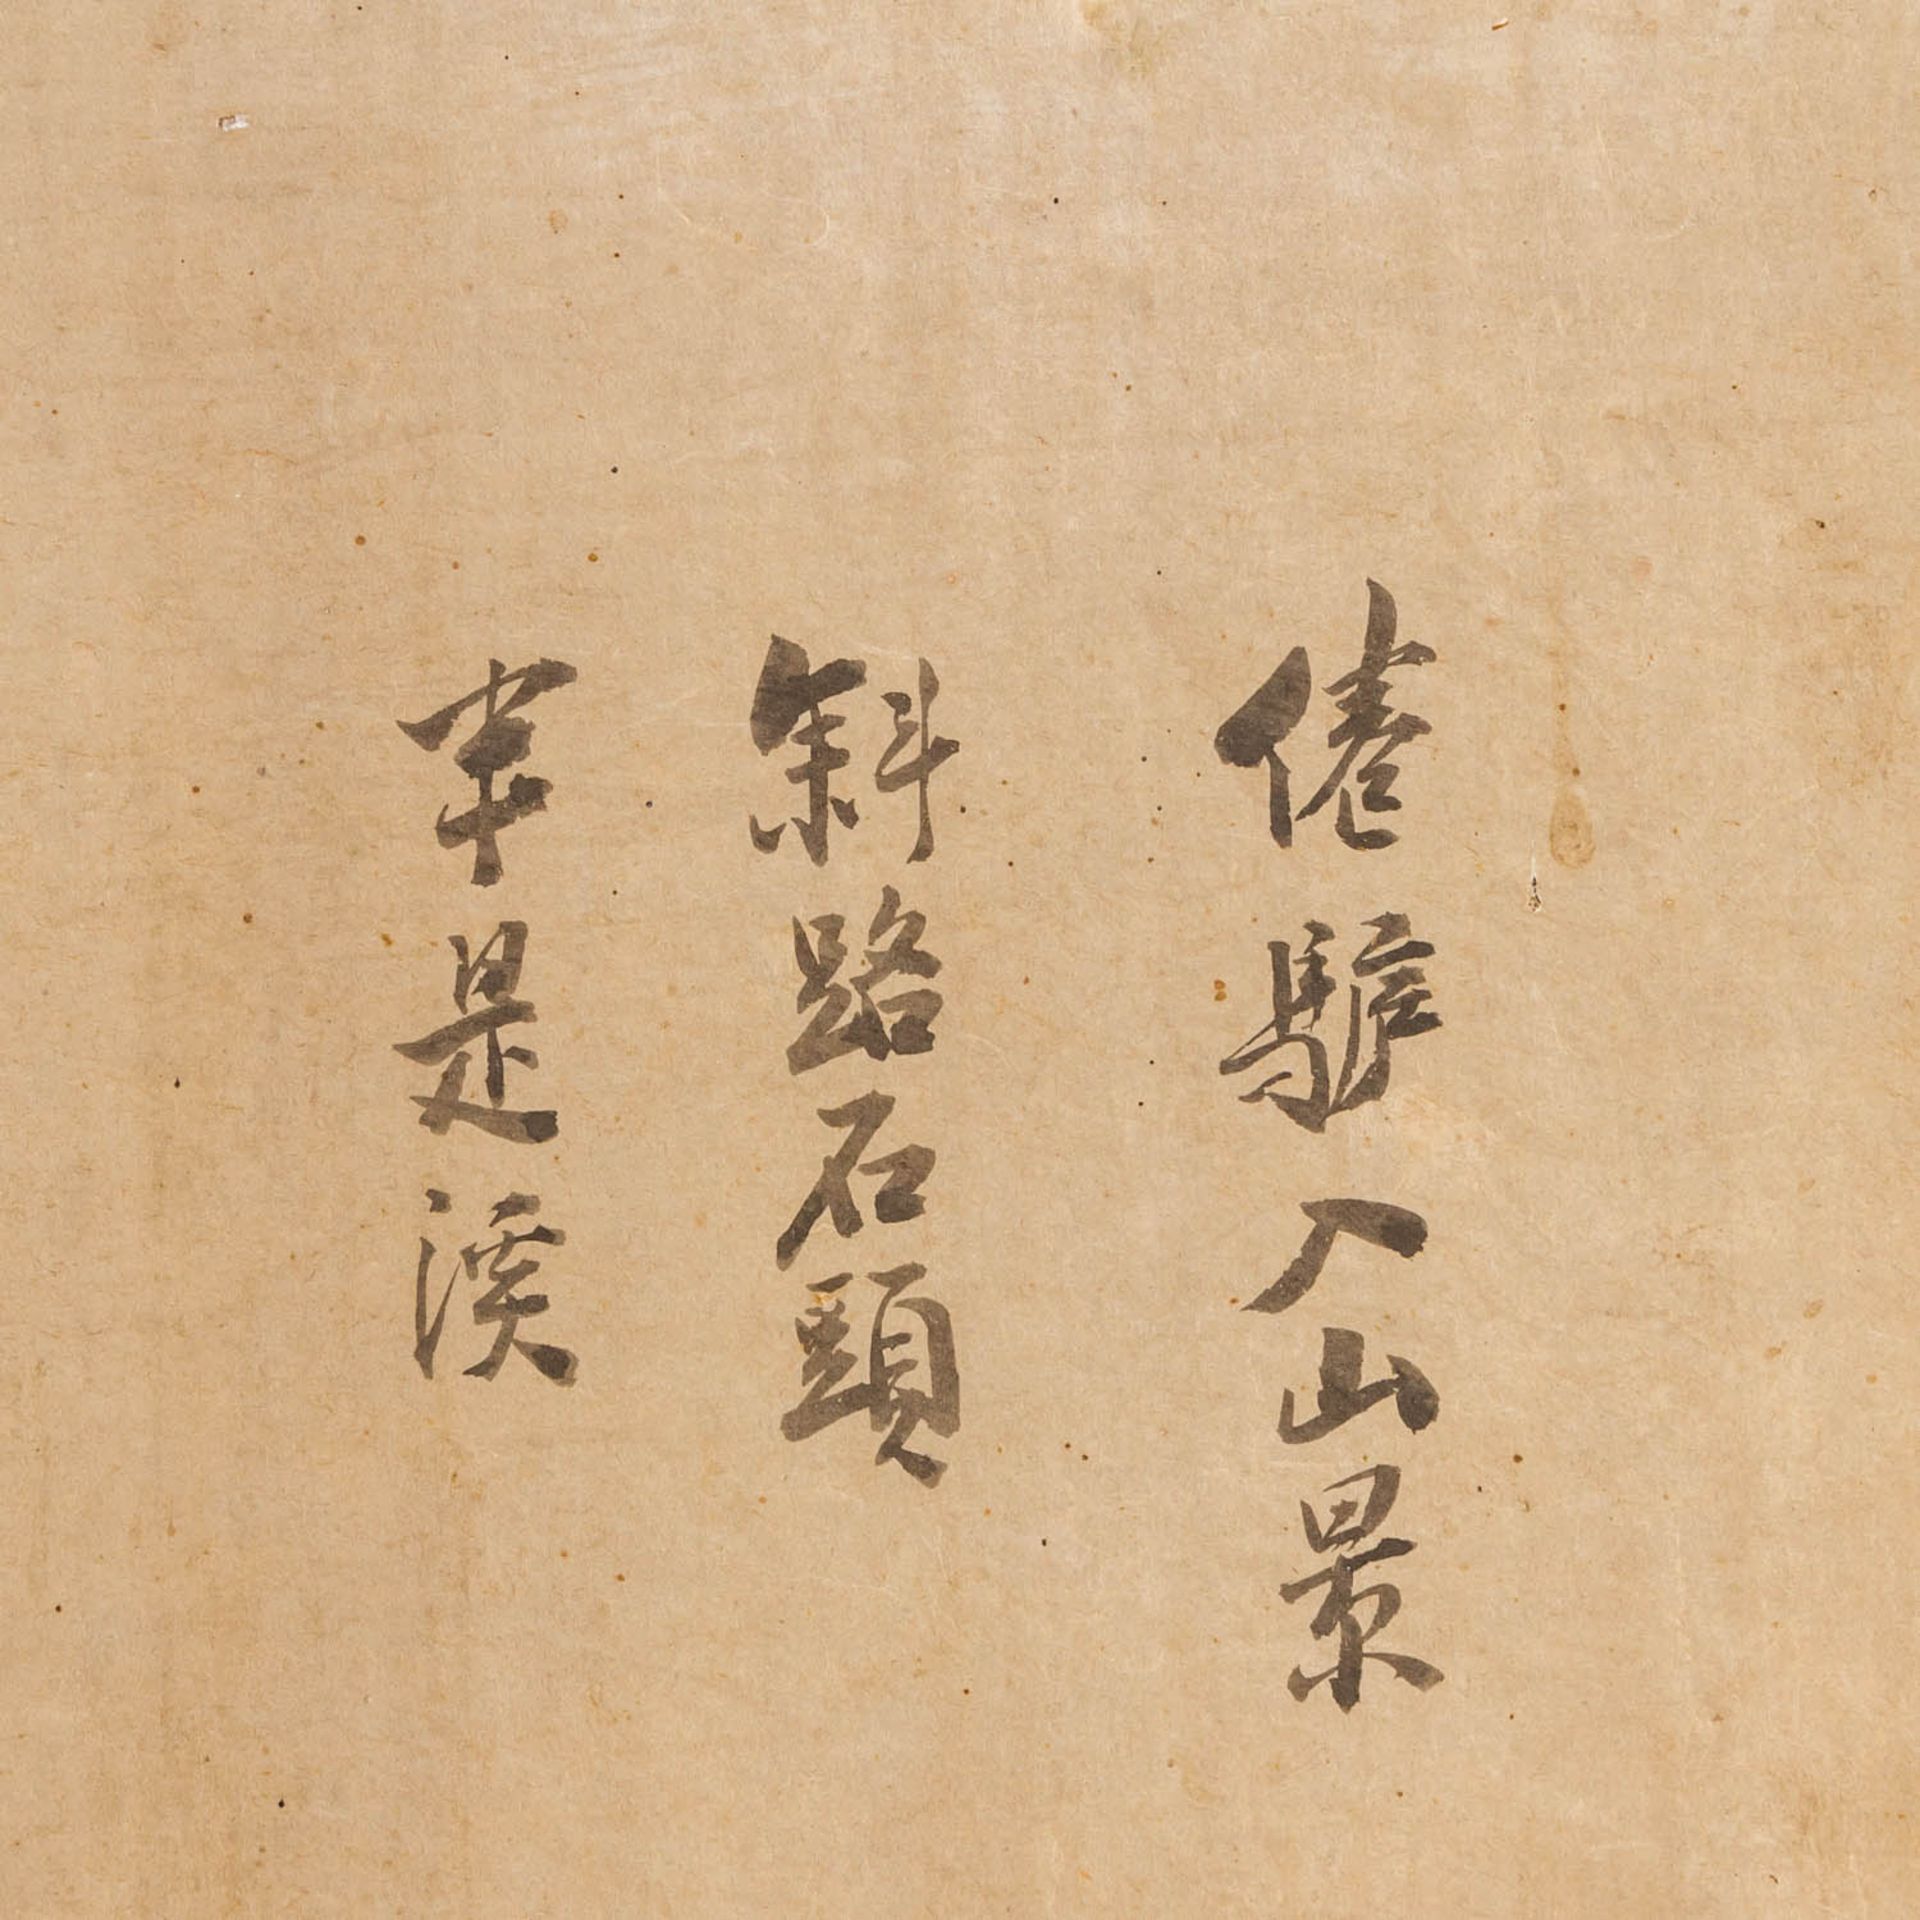 倦驢入山景
斜路石頭
半是溪